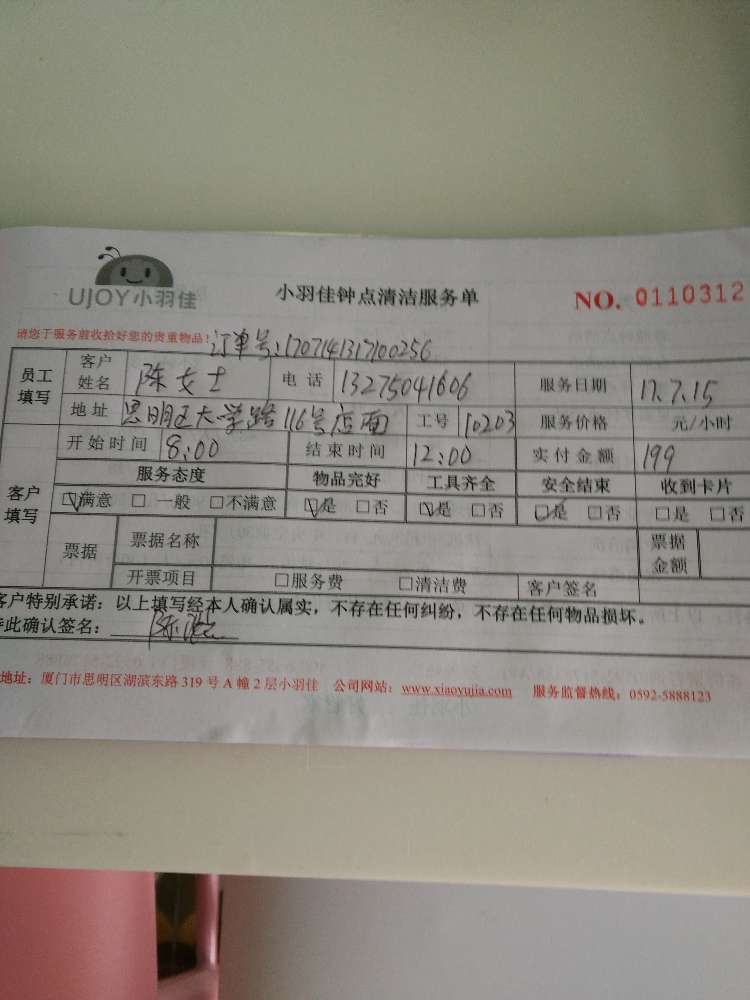 UJOY小羽佳
小羽佳钟点清洁服务单
NO. 0110312
请您于服务前收拾好您的贵重物品！
订单号:1707141317100256
员工填写 客户姓名 陈女士 电话 13275041606 服务日期 17.7.15
地址 思明区大学路116号店面 工号 10203 服务价格 元/小时
客户填写 开始时间 8:00 结束时间 12:00 实付金额 199
服务态度 物品完好 工具齐全 安全结束 收到卡片
☑满意 □一般 □不满意 ☑是 □否 ☑是 □否 ☑是 □否 □是 □否
票据 票据名称 票据金额
开票项目 □服务费 □清洁费 客户签名
客户特别承诺：以上填写经本人确认属实，不存在任何纠纷，不存在任何物品损坏。
此确认签名： 陈
地址：厦门市思明区湖滨东路319号A幢2层小羽佳 公司网站：www.xiaoyujia.com 服务监督热线：0592-5888123